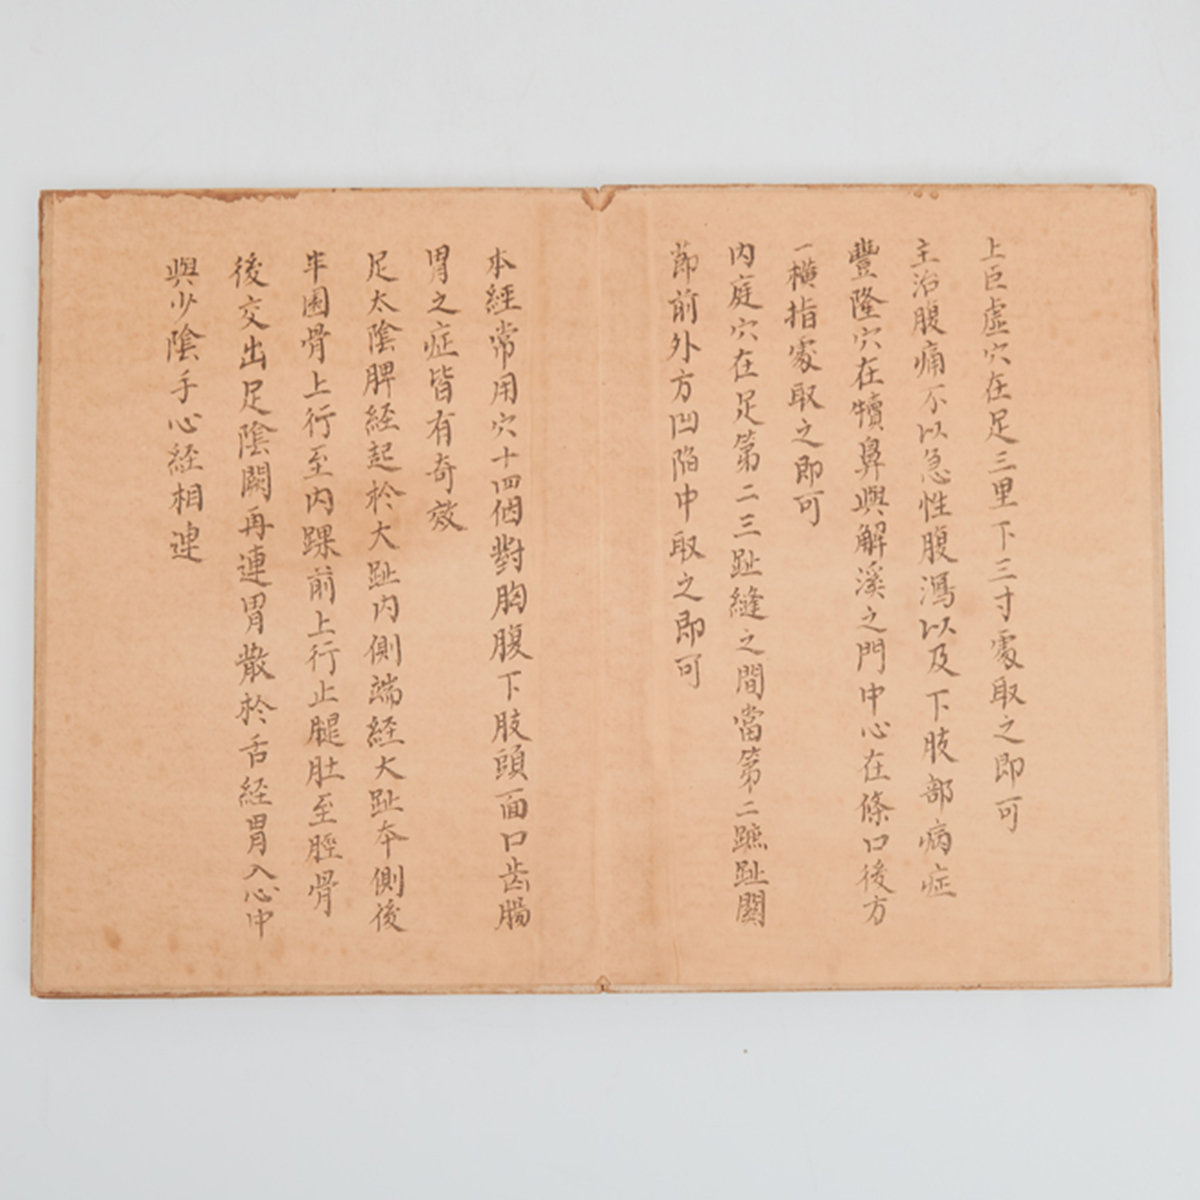 上巨虛穴在足三里下三寸處取之即可
主治腹痛不以急性腹瀉以及下肢部病症
豐隆穴在犢鼻與解溪之門中心在條口後方
一橫指處取之即可
內庭穴在足第二三趾縫之間當第二蹠趾關
節前外方凹陷中取之即可
本經常用穴十四個對胸腹下肢頭面口齒腸
胃之症皆有奇效
足太陰脾経起於大趾內側端経大趾本側後
半圍骨上行至內踝前上行止腿肚至脛骨
後交出足陰闕再連胃散於舌経胃入心中
與少陰手心経相連